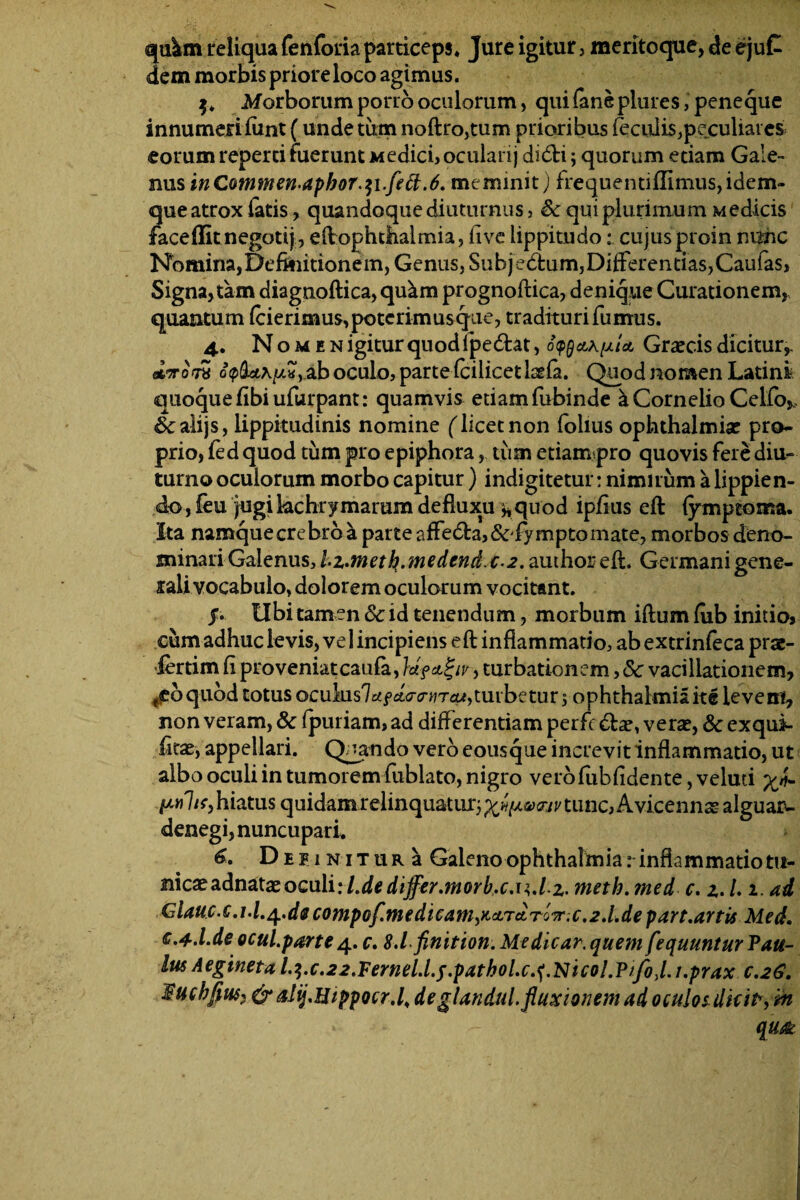 quàm reliqua senforia particeps. Jure igitur, meritoque, de ejus-
dem morbis priore loco agimus.
3. Morborum porrò oculorum, qui sanè plures, peneque
innumeri sunt (unde tùm nostro, tum prioribus seculis, peculiares
eorum reperti fuerunt Medici, ocularij dicti; quorum etiam Gale-
nus in Commen. aphor. 31. sect. 6. meminit) frequentissimus, idem-
que atrox satis, quandoque diuturnus, & qui plurimum Medicis
facessit negotij, est ophthalmia, sive lippitudo: cujus proin nunc
Nomina, Definitionem, Genus, Subjectum, Differentias, Causas,
Signa, tàm diagnostica, quàm prognostica, denique Curationem,
quantum scierimus, poterimusque, tradituri sumus.
4. NOMEN igitur quod spectat, ὀφθαλμία Græcis dicitur,
ἀπὸ τῦ ὀφθαλμῦ, ab oculo, parte scilicet læsa. Quod nomen Latini
quoque sibi usurpant: quamvis etiam subinde à Cornelio Celso,
& alijs, lippitudinis nomine (licet non solius ophthalmiæ pro-
prio, sed quod tùm pro epiphora, tùm etiam pro quovis ferè diu-
turno oculorum morbo capitur) indigitetur: nimirùm à lippien-
do, seu jugi lachrymarum defluxu, quod ipsius est symptoma.
Ita namque crebrò à parte affecta, & symptomate, morbos deno-
minari Galenus, l. 2. meth. medend. c. 2. author est. Germani gene-
rali vocabulo, dolorem oculorum vocitant.
5. Ubi tamen & id tenendum, morbum istum sub initio,
cùm adhuc levis, vel incipiens est inflammatio, ab extrinseca præ-
sertim si proveniat causa, τάραξιν, turbationem, & vacillationem,
eò quòd totus oculus ταράσσηται, turbetur; ophthalmiā itē levem,
non veram, & spuriam, ad differentiam perfectæ, veræ, & exqui-
sitæ, appellari. Quando verò eousque increvit inflammatio, ut
albo oculi in tumorem sublato, nigro verò subsidente, veluti χά-
μηlις, hiatus quidam relinquatur; χήμωσιν tunc, Avicennæ alguar-
denegi, nuncupari.
6. DEFINITUR à Galeno ophthalmia: inflammatio tu-
nicæ adnatæ oculi: l. de differ. morb. c. 13. l. 2. meth. med. c. 2. l. 1. ad
Glauc. c. 1. l. 4. de compos. medicam, κατὰ τόπ. c. 2. l. de part. artis Med.
c. 4. l. de ocul. parte 4. c. 8. l. finition. Medic ar. quem sequuntur Pau-
lus Aegineta l. 3. c. 22. Fernel. l. 5. pathol. c. 5. Nicol. Piso, l. 1. prax c. 26.
Fuchsius, & alij. Hippocr. l. de glandul. fluxionem ad oculos dicit, in
quæ